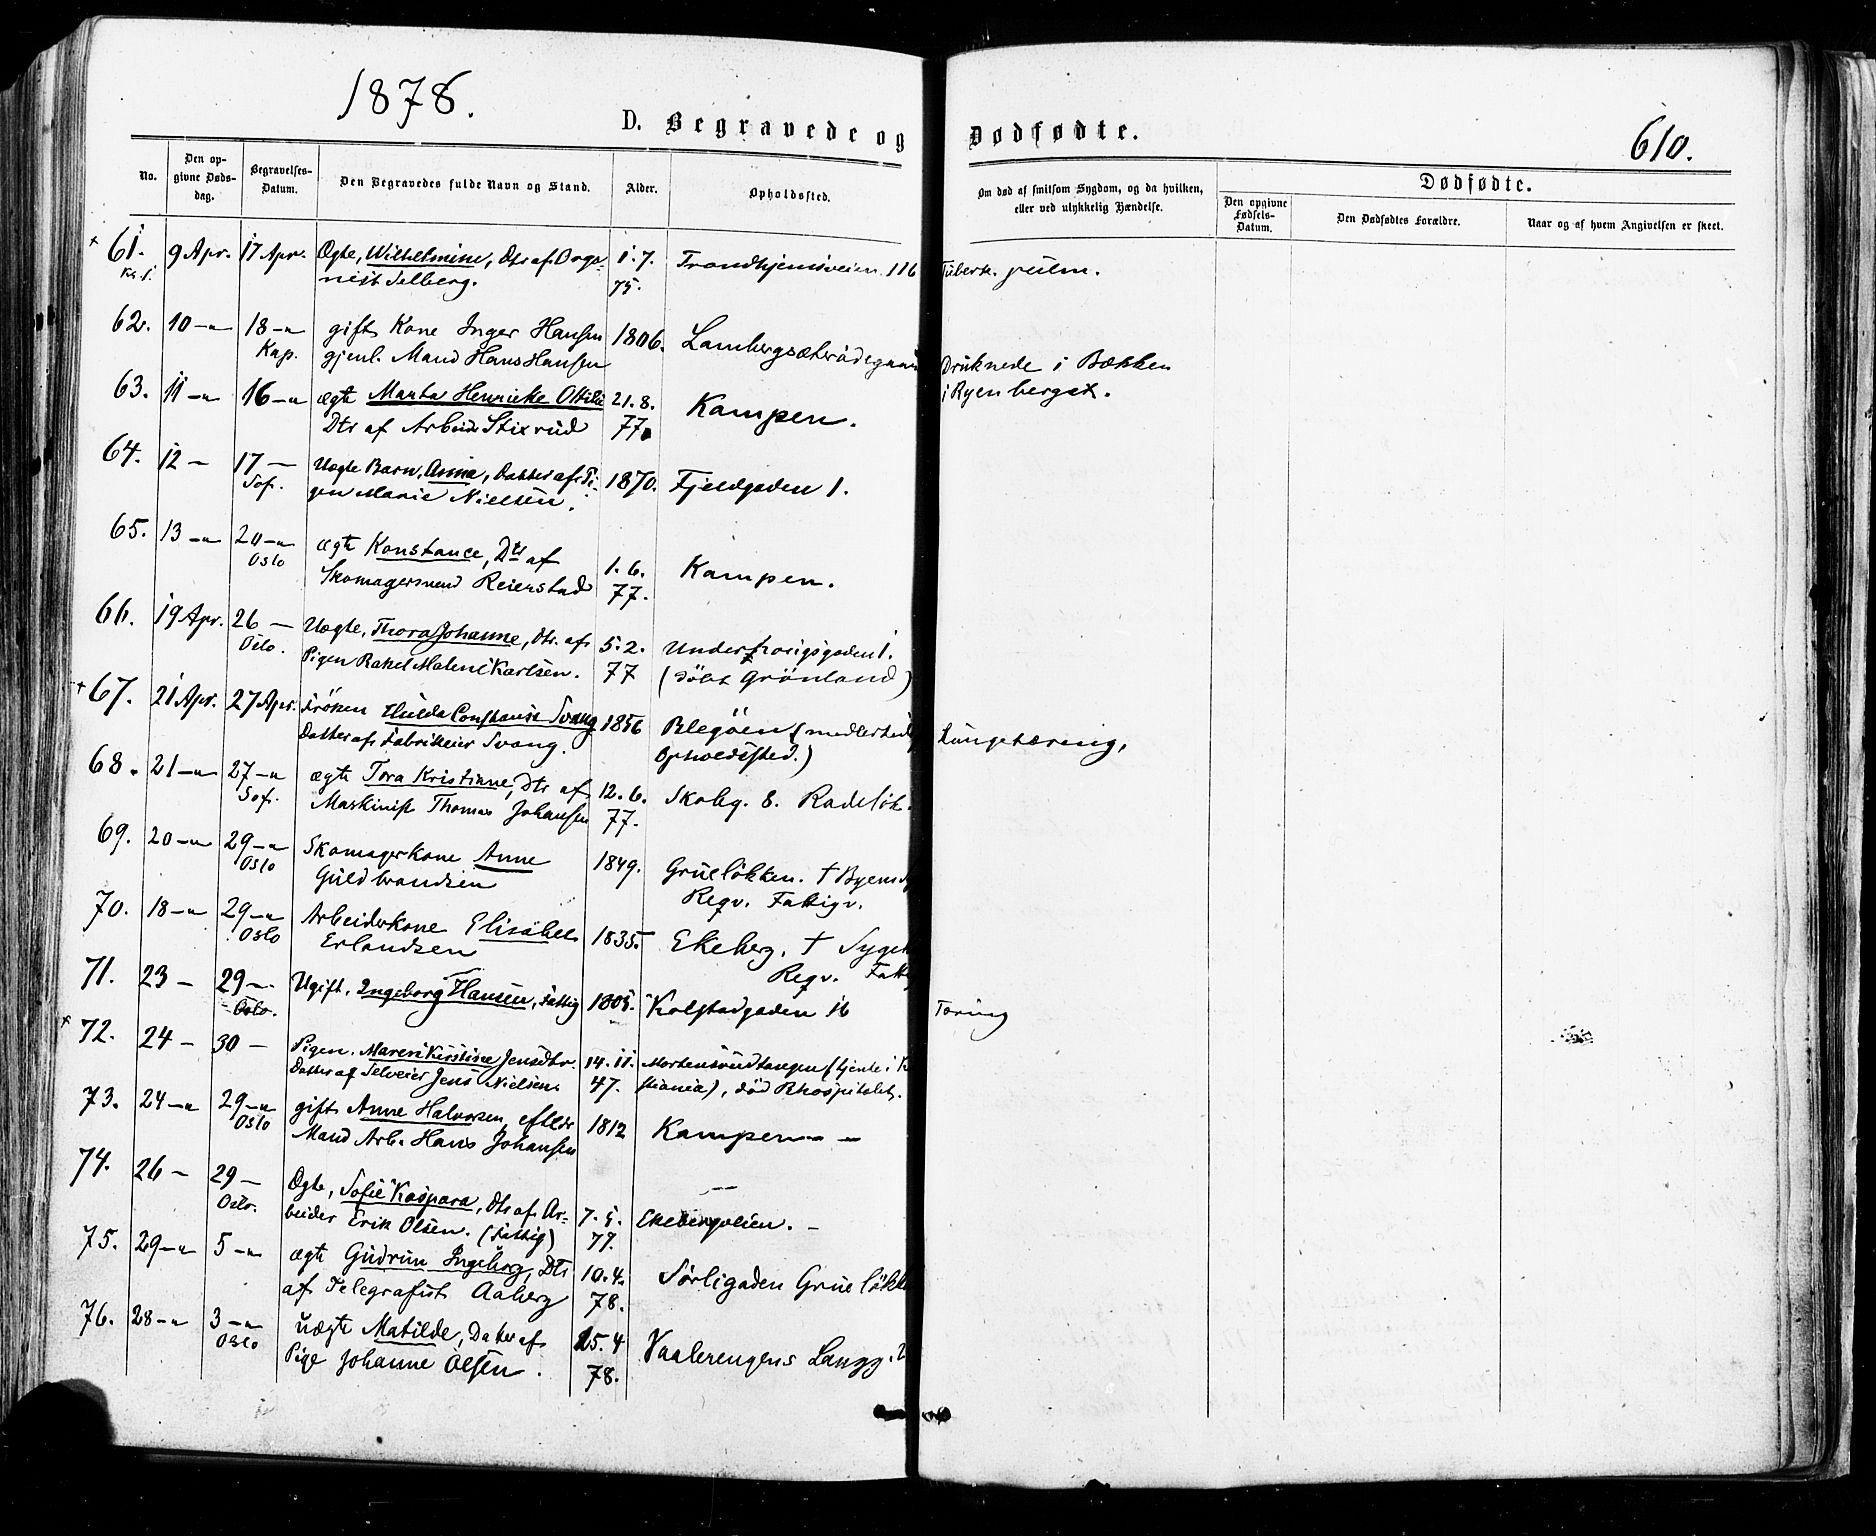 1878.
D. Begravede og Dødfødte.
610.
No.
Den opgivne Dødsdag.
Begravelses-Datum.
Den Begravedes fulde Navn og Stand.
Alder.
Opholdssted.
Om død af smitsom Sygdom, og da hvilken, eller ved ulykkelig Hændelse.
Dødfødte.
Den opgivne Fødsels-Datum.
Den Dødfødtes Forældre.
Naar og af hvem Angivelsen er skeet.
61. 9 Apr. 17 Apr. Ægte, Wilhelmine, Dtr af Orga- 1. 7. Trondhjemsveien 116 Tuberk. pulm.
nist Selberg. 75.
62. 10 -"- 18 -"- gift Kone Inger Hansen 1806.
Kap. gjenl. Mand Hans Hansen Druknede i Bækken
i Ryenberget.
63. 11 -"- 16 -"- ægte Marta Henrieke Otilie 21. 8. Kampen.
Dtr af Arbeid Stixrud 77
64. 12 - 17 - Uægte Barn, Anna, Datter af Pi- 1870. Fjeldgaden 1.
Sof. gen Marie Nielsen.
65. 13 -"- 20 -"- ægte Konstance, Dtr af 1. 6. Kampen.
Oslo Skomagersvend Reierstad 77.
66. 19 Apr. 26 - Uægte, Thora Johanne, Dtr. af 5. 2.
Oslo. Pigen Rakel Malene Karlsen. 77 (döbt Grönland)
67. 21 Apr. 27 Apr. Fröken Hulda Constanse Svang 1856 Blegöen (midlertidig Lungetæring,
Datter af Fabrikeier Svang. Opholdssted.)
68. 21 -"- 27 -"- ægte Tora Kristiane, Dtr af 12. 6. Skolg. 8. Rodeløk.
Sof. Maskinist Thomas Johansen 77.
69. 20 -"- 29 -"- Skomagerkone Anne 1849. Grueløkken. † Byens
Oslo Guldbrandsen Regv. Fattigv.
70. 18 -"- 29 -"- Arbeiderkone Elisabet 1835. Ekeberg. † Sygeh
Oslo Erlandsen Regv. Fatt
71. 23 - 29 - Ugift, Ingeborg Hansen, fattig 1805. Kolstadgaden 16 Tæring
Oslo.
72. 24 - 30 - Pigen, Maren Kirstine Jensdtr. 14. 11. Mortensrudtangen (tjente i K
Datter af Selveier Jens Nielsen. 47. stiania), död Rhospitalet.
73. 24 -"- 29 -"- gift Anne Halvorsen, efterl 1812 Kampen -
Oslo Mand Arb. Hans Johansen
74. 26 - 29 - Ægte, Sofie Kaspara, Dtr af Ar- 7. 5. Ekeberglien. -
Oslo. beider Erik Olsen. (fattig) 77.
75. 29 -"- 5 -"- ægte Gudrun Ingeborg, Dtr 10. 4. Sørligaden Grueløkke
af Telegrafist Aaberg 78.
76. 28 -"- 3 -"- uægte Matilde, Datter af 25. 4 Vaalerengens Langg. 2
Oslo Pige Johanne Olsen. 78.